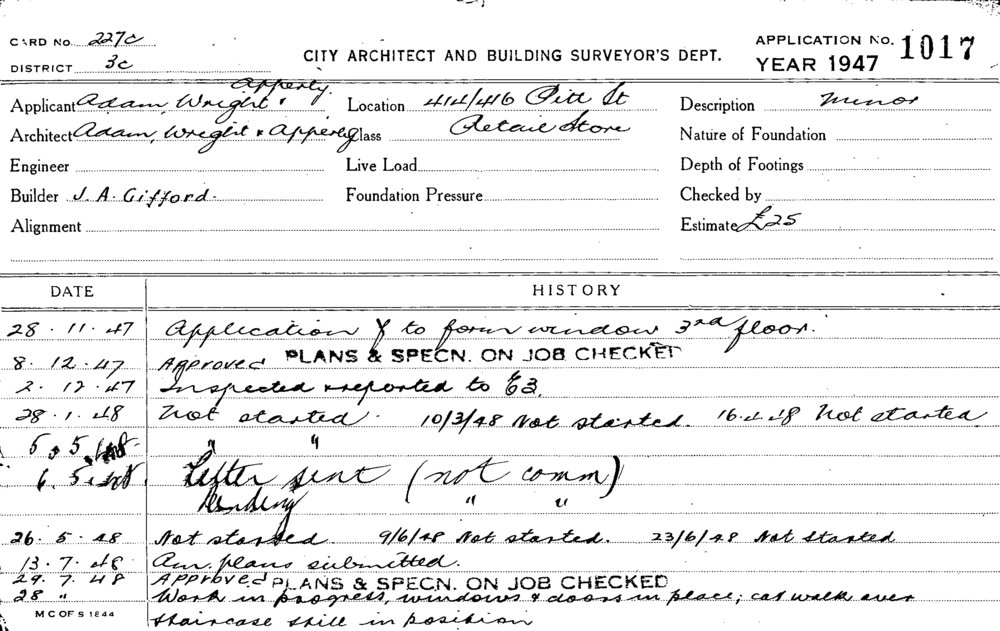 CARD No. 227c
DISTRICT 3c
CITY ARCHITECT AND BUILDING SURVEYOR'S DEPT.
APPLICATION No. 1017
YEAR 1947
Applicant Adam, Wright & Apperly. Location 414/416 Pitt St Description Minor
Architect Adam, Wright & Apperly Class Retail Store Nature of Foundation
Engineer Live Load Depth of Footings
Builder J. A. Gifford. Foundation Pressure Checked by
Alignment Estimate £25
DATE HISTORY
28.11.47 Application to form window 3rd floor.
8.12.47 Approved PLANS & SPECN. ON JOB CHECKED
2.12.47 Inspected & reported to
28.1.48 Not started. 10/3/48 Not started. 16.4.48 Not started
5.5.48 " "
6.5.48 Letter sent (not comm)
Pending " "
26.5.48 Not started. 9/6/48 Not started. 23/6/48 Not started
13.7.48 Am. plans submitted.
29.7.48 Approved PLANS & SPECN. ON JOB CHECKED
28 " Work in progress, windows & doors in place; cat walk over
staircase still in position
M C OF S 1644